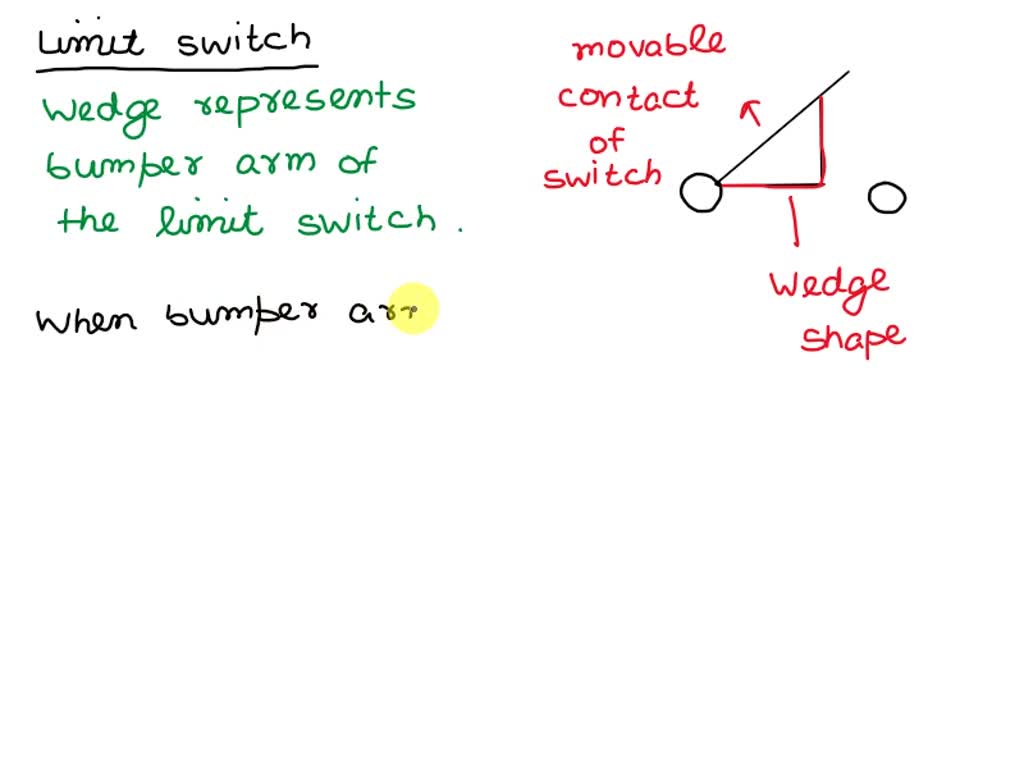 Limit switch
Wedge represents
bumper arm of
the limit switch.
When bumper
movable
contact
of
switch
Wedge
shape